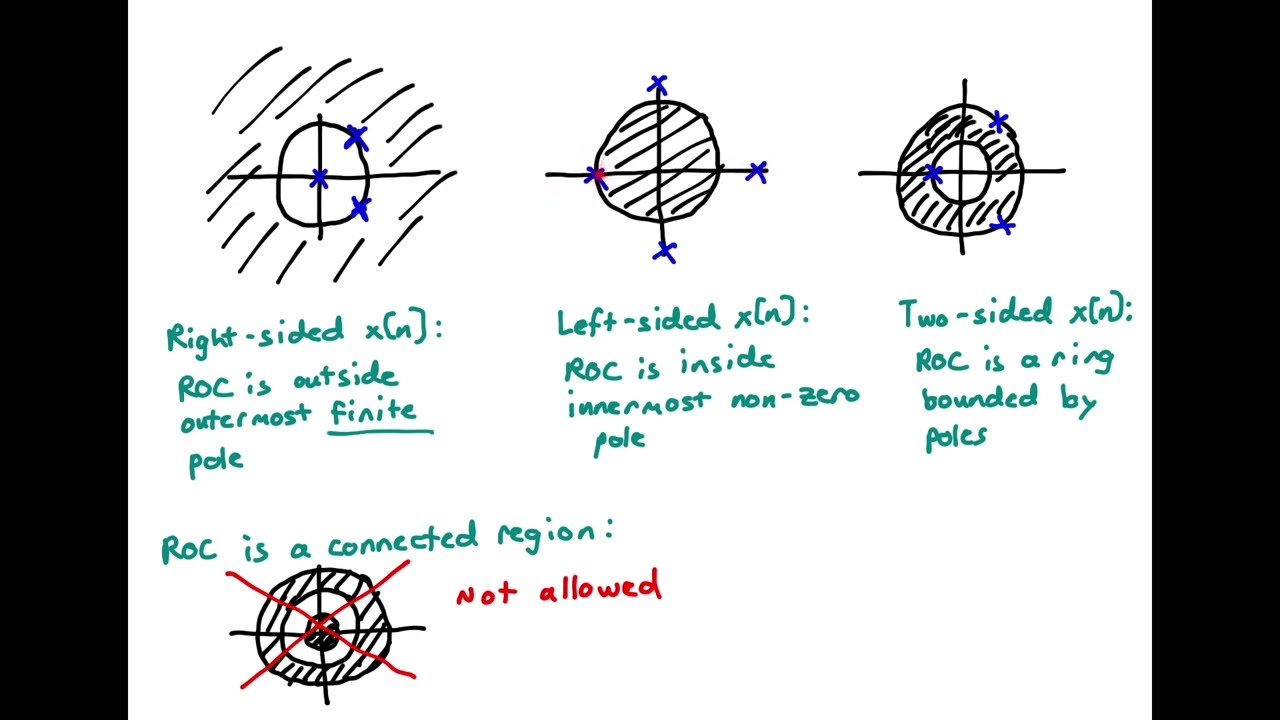 Right-sided x[n]:
ROC is outside
outermost finite
pole
Left-sided x[n]:
ROC is inside
innermost non-zero
pole
Two-sided x[n]:
ROC is a ring
bounded by
poles
ROC is a connected region:
Not allowed